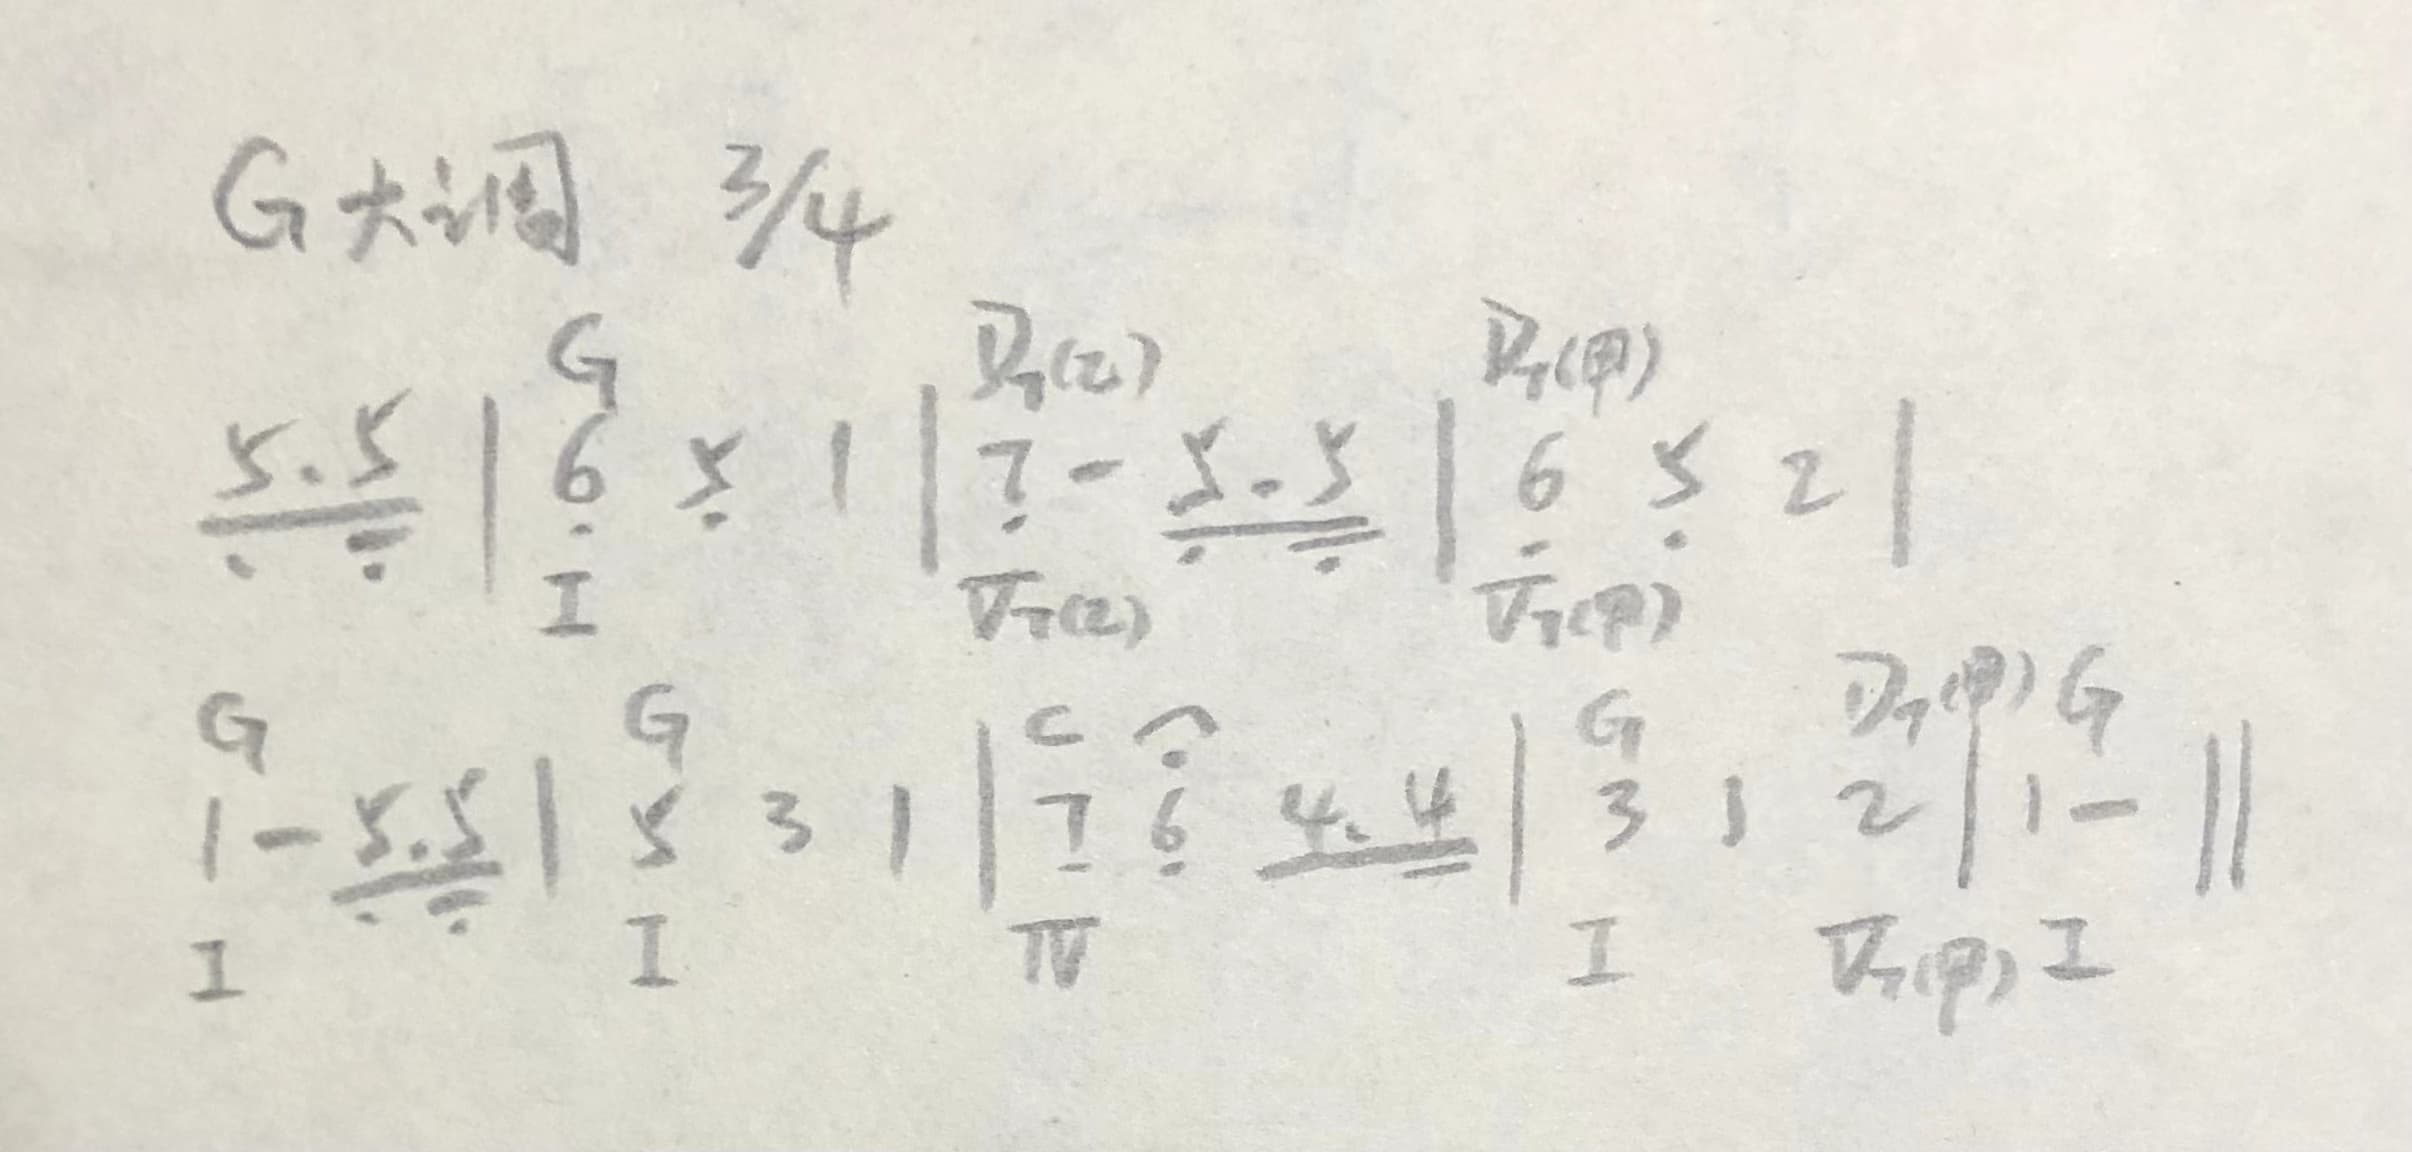 G大调 3/4
G D7(乙) D7(甲)
5.5 | 6 5 1 | 7 - 5.5 | 6 5 2 |
I V7(乙) V7(甲)
G G C G D7(甲) G
1 - 5.5 | 5 3 1 | 7 6 4.4 | 3 1 2 | 1 - ||
I I IV I V7(甲) I